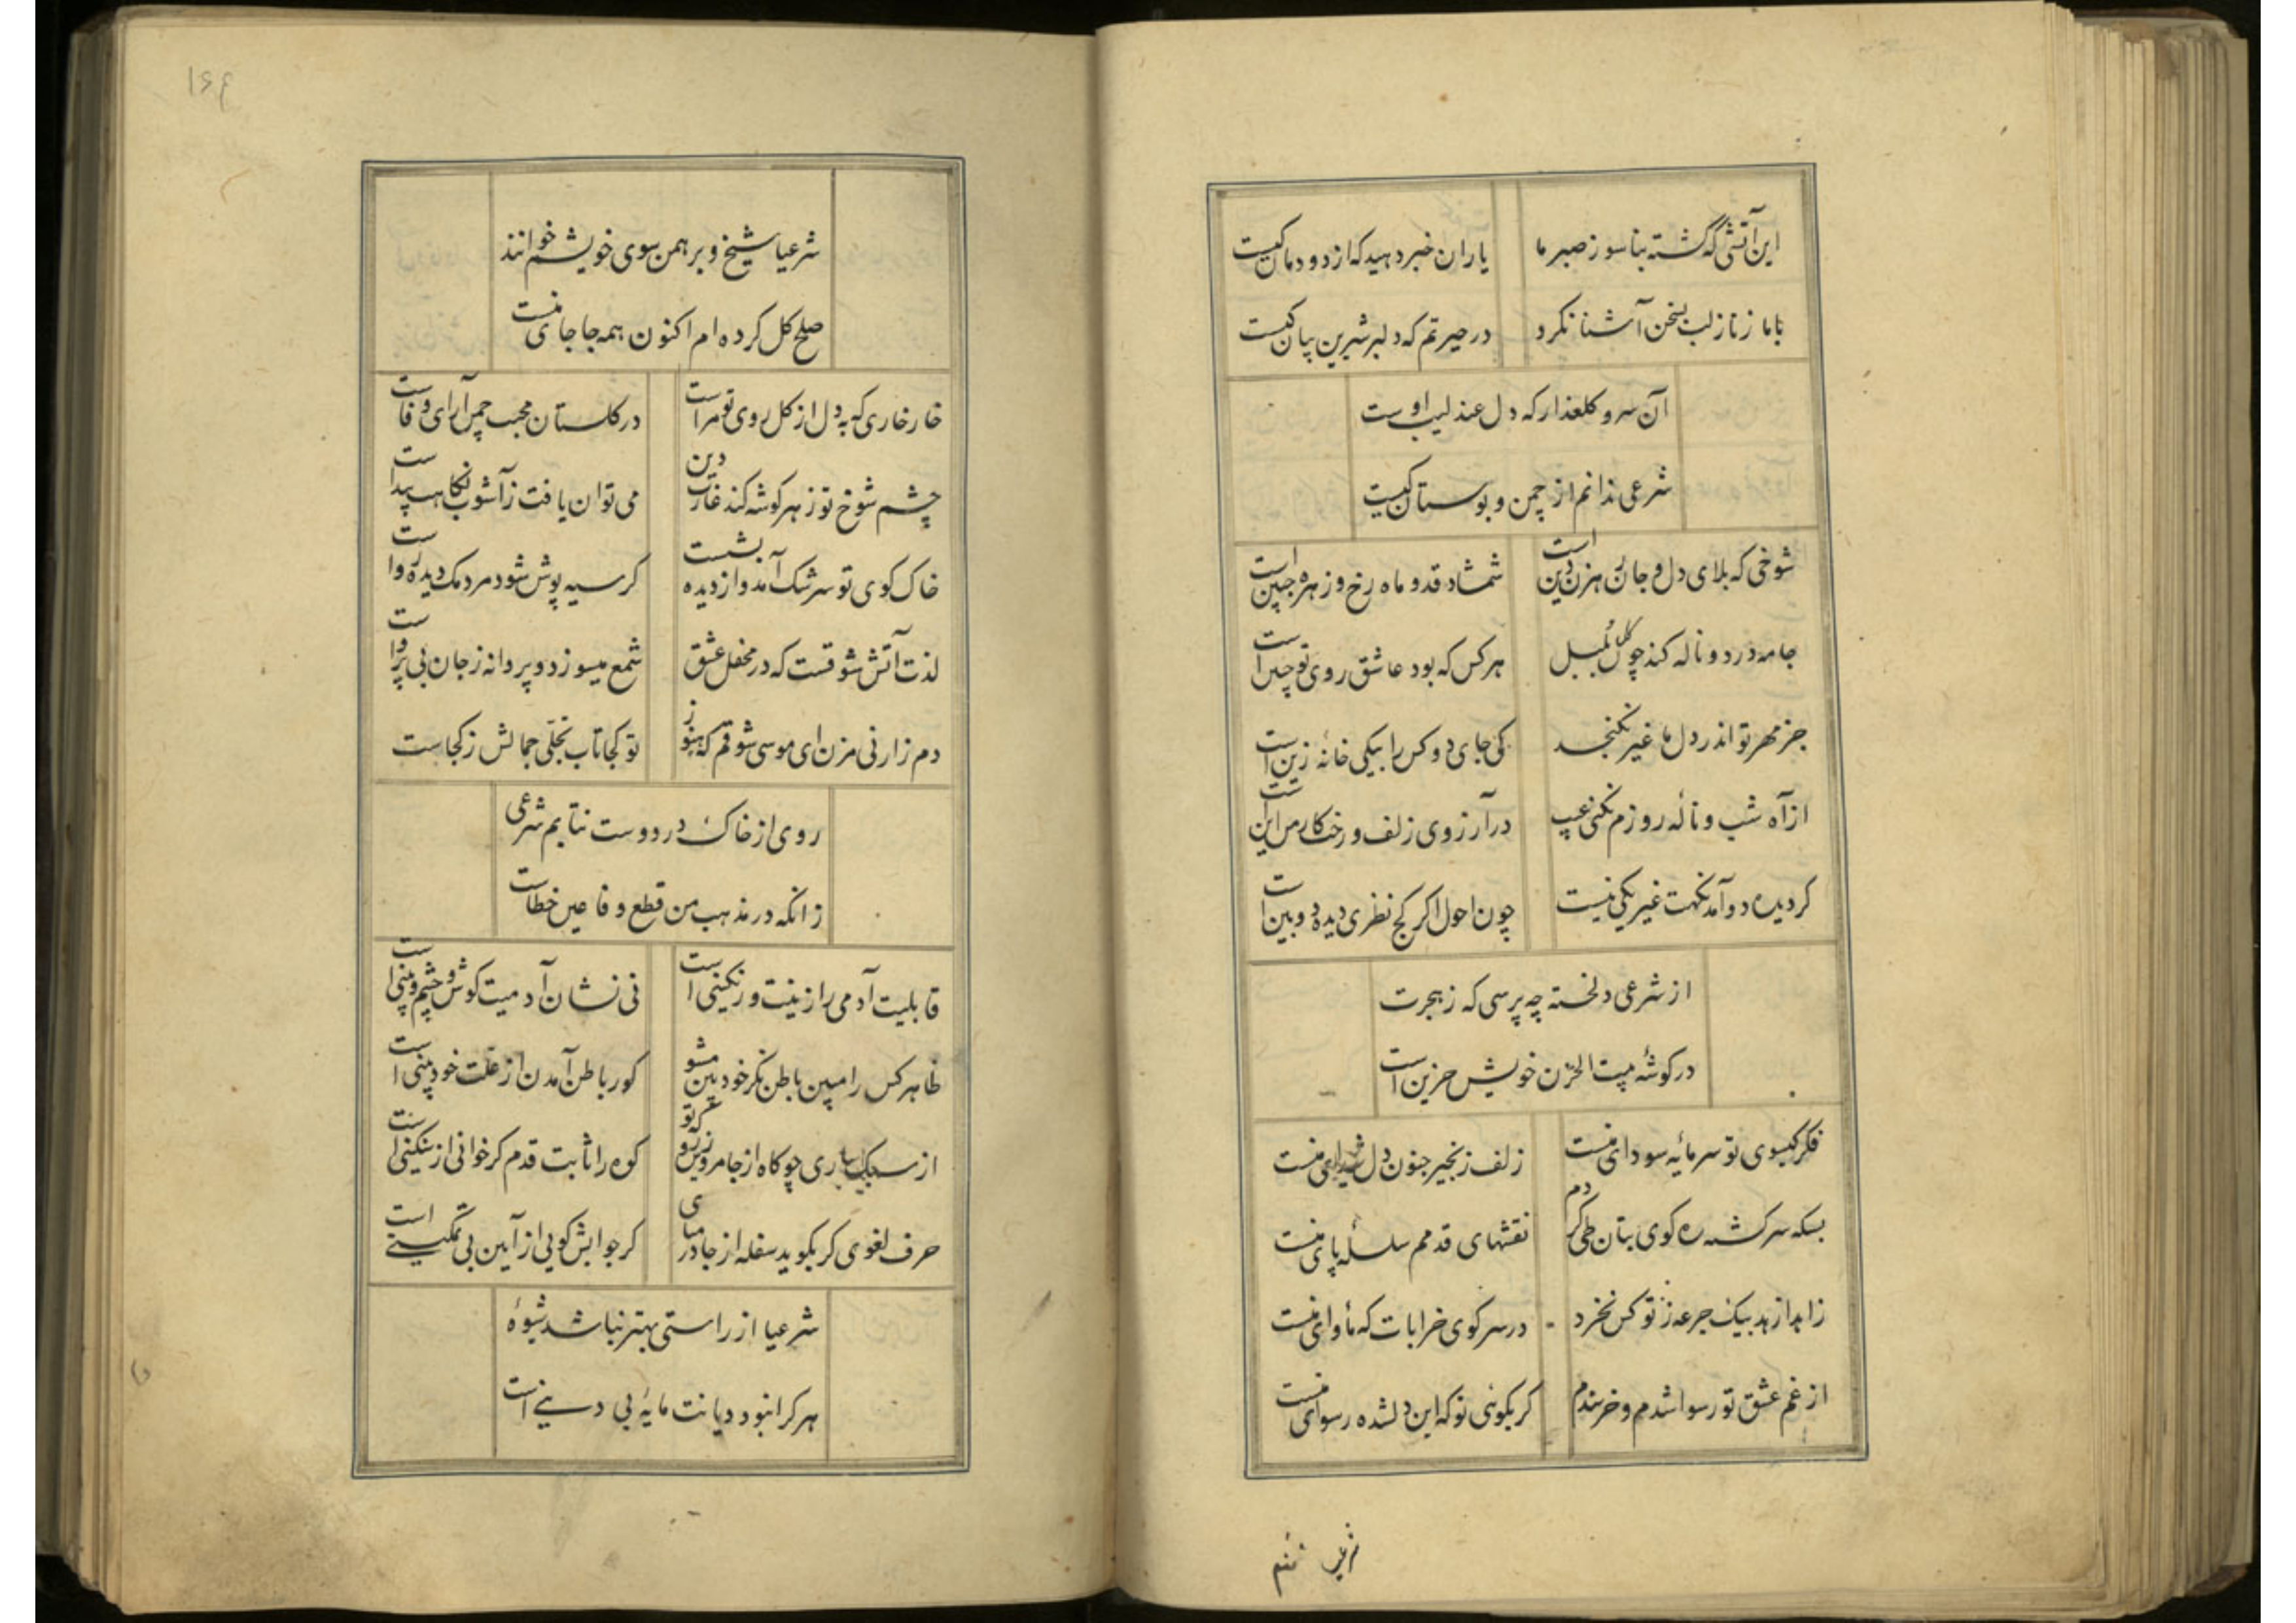 این آتشی که گشته بنا سوز صبر ما
یاران خبر دهید که از دودمان کیست
با ما ز ناز لب بسخن آشنا نکرد
در حیرتم که دلبر شیرین بیان کیست
آن سرو کلعذار که دل عندلیب اوست
شرعی ندانم از چمن و بوستان کیست
شوخی که بلای دل و جان رهزن دین است
شمشاد قد و ماه رخ و زهره جبین است
جامه درد و ناله کند چو کل بلبل
هر کس که بود عاشق روی تو چنین است
جز مهر تو اندر دل ما غیر نکنجد
کی جای دو کس را بیکی خانه زین است
از آه شب و نالهٔ روزم نکنی عیب
در آرزوی زلف و رخت کار من این است
کر دیده دو آمد نکهت غیر یکی نیست
چون احول اکر کج نظری دیده دو بین است
از شرعی دلخسته چه پرسی که ز هجرت
در کوشهٔ بیت الحزن خویش حزین است
فکر کیسوی تو سرمایهٔ سودای منست
زلف زنجیر جنون دل شیدای منست
بسکه سرکشته ره کوی بتان طی کردم
نقشهای قدمم سلسلهٔ پای منست
زاهد از زهد بیک جرعه ز تو کس نخرد
در سر کوی خرابات که مأوای منست
از غم عشق تو رسوا شدم و خرسندم
کر بکوئی تو که این دلشده رسوای منست
۱۶۶
شرعیا شیخ و برهمن سوی خویشم خوانند
صلح کل کرده ام اکنون همه جا جای منست
خار خاری که به دل از کل روی تو مراست
در کلستان محبت چمن آرای وفاست
چشم شوخ تو ز هر کوشه کند غارت دین
می توان یافت ز آشوب نکاهت پیداست
خاک کوی تو سرشک آمد و از دیده بشست
کر سیه پوش شود مردمک دیده رواست
لذت آتش شوقست که در محفل عشق
شمع میسوزد و پروانه ز جان بی پرواست
دم ز ارنی مزن ای موسی شوقم که هنوز
تو کجا تاب تجلی جمالش ز کجاست
روی از خاک در دوست نتابم شرعی
زانکه در مذهب من قطع وفا عین خطاست
قابلیت آدمی را زینت و رنکینی است
نی نشان آدمیت کوش و چشم و بینی است
ظاهر کس را مبین باطن نکر خودبین مشو
کور باطن آمدن از علت خود بینی است
از سبک باری چو کاه از جا مرو زین کو تو
کوه را ثابت قدم کر خوانی از سنکینی است
حرف لغوی کر بکوید سفله از جا در میای
کر جوابش کویی از آیین بی تمکینی است
شرعیا از راستی بهتر نباشد شیوهٔ
هر کرا نبود دیانت مایهٔ بی دینی است